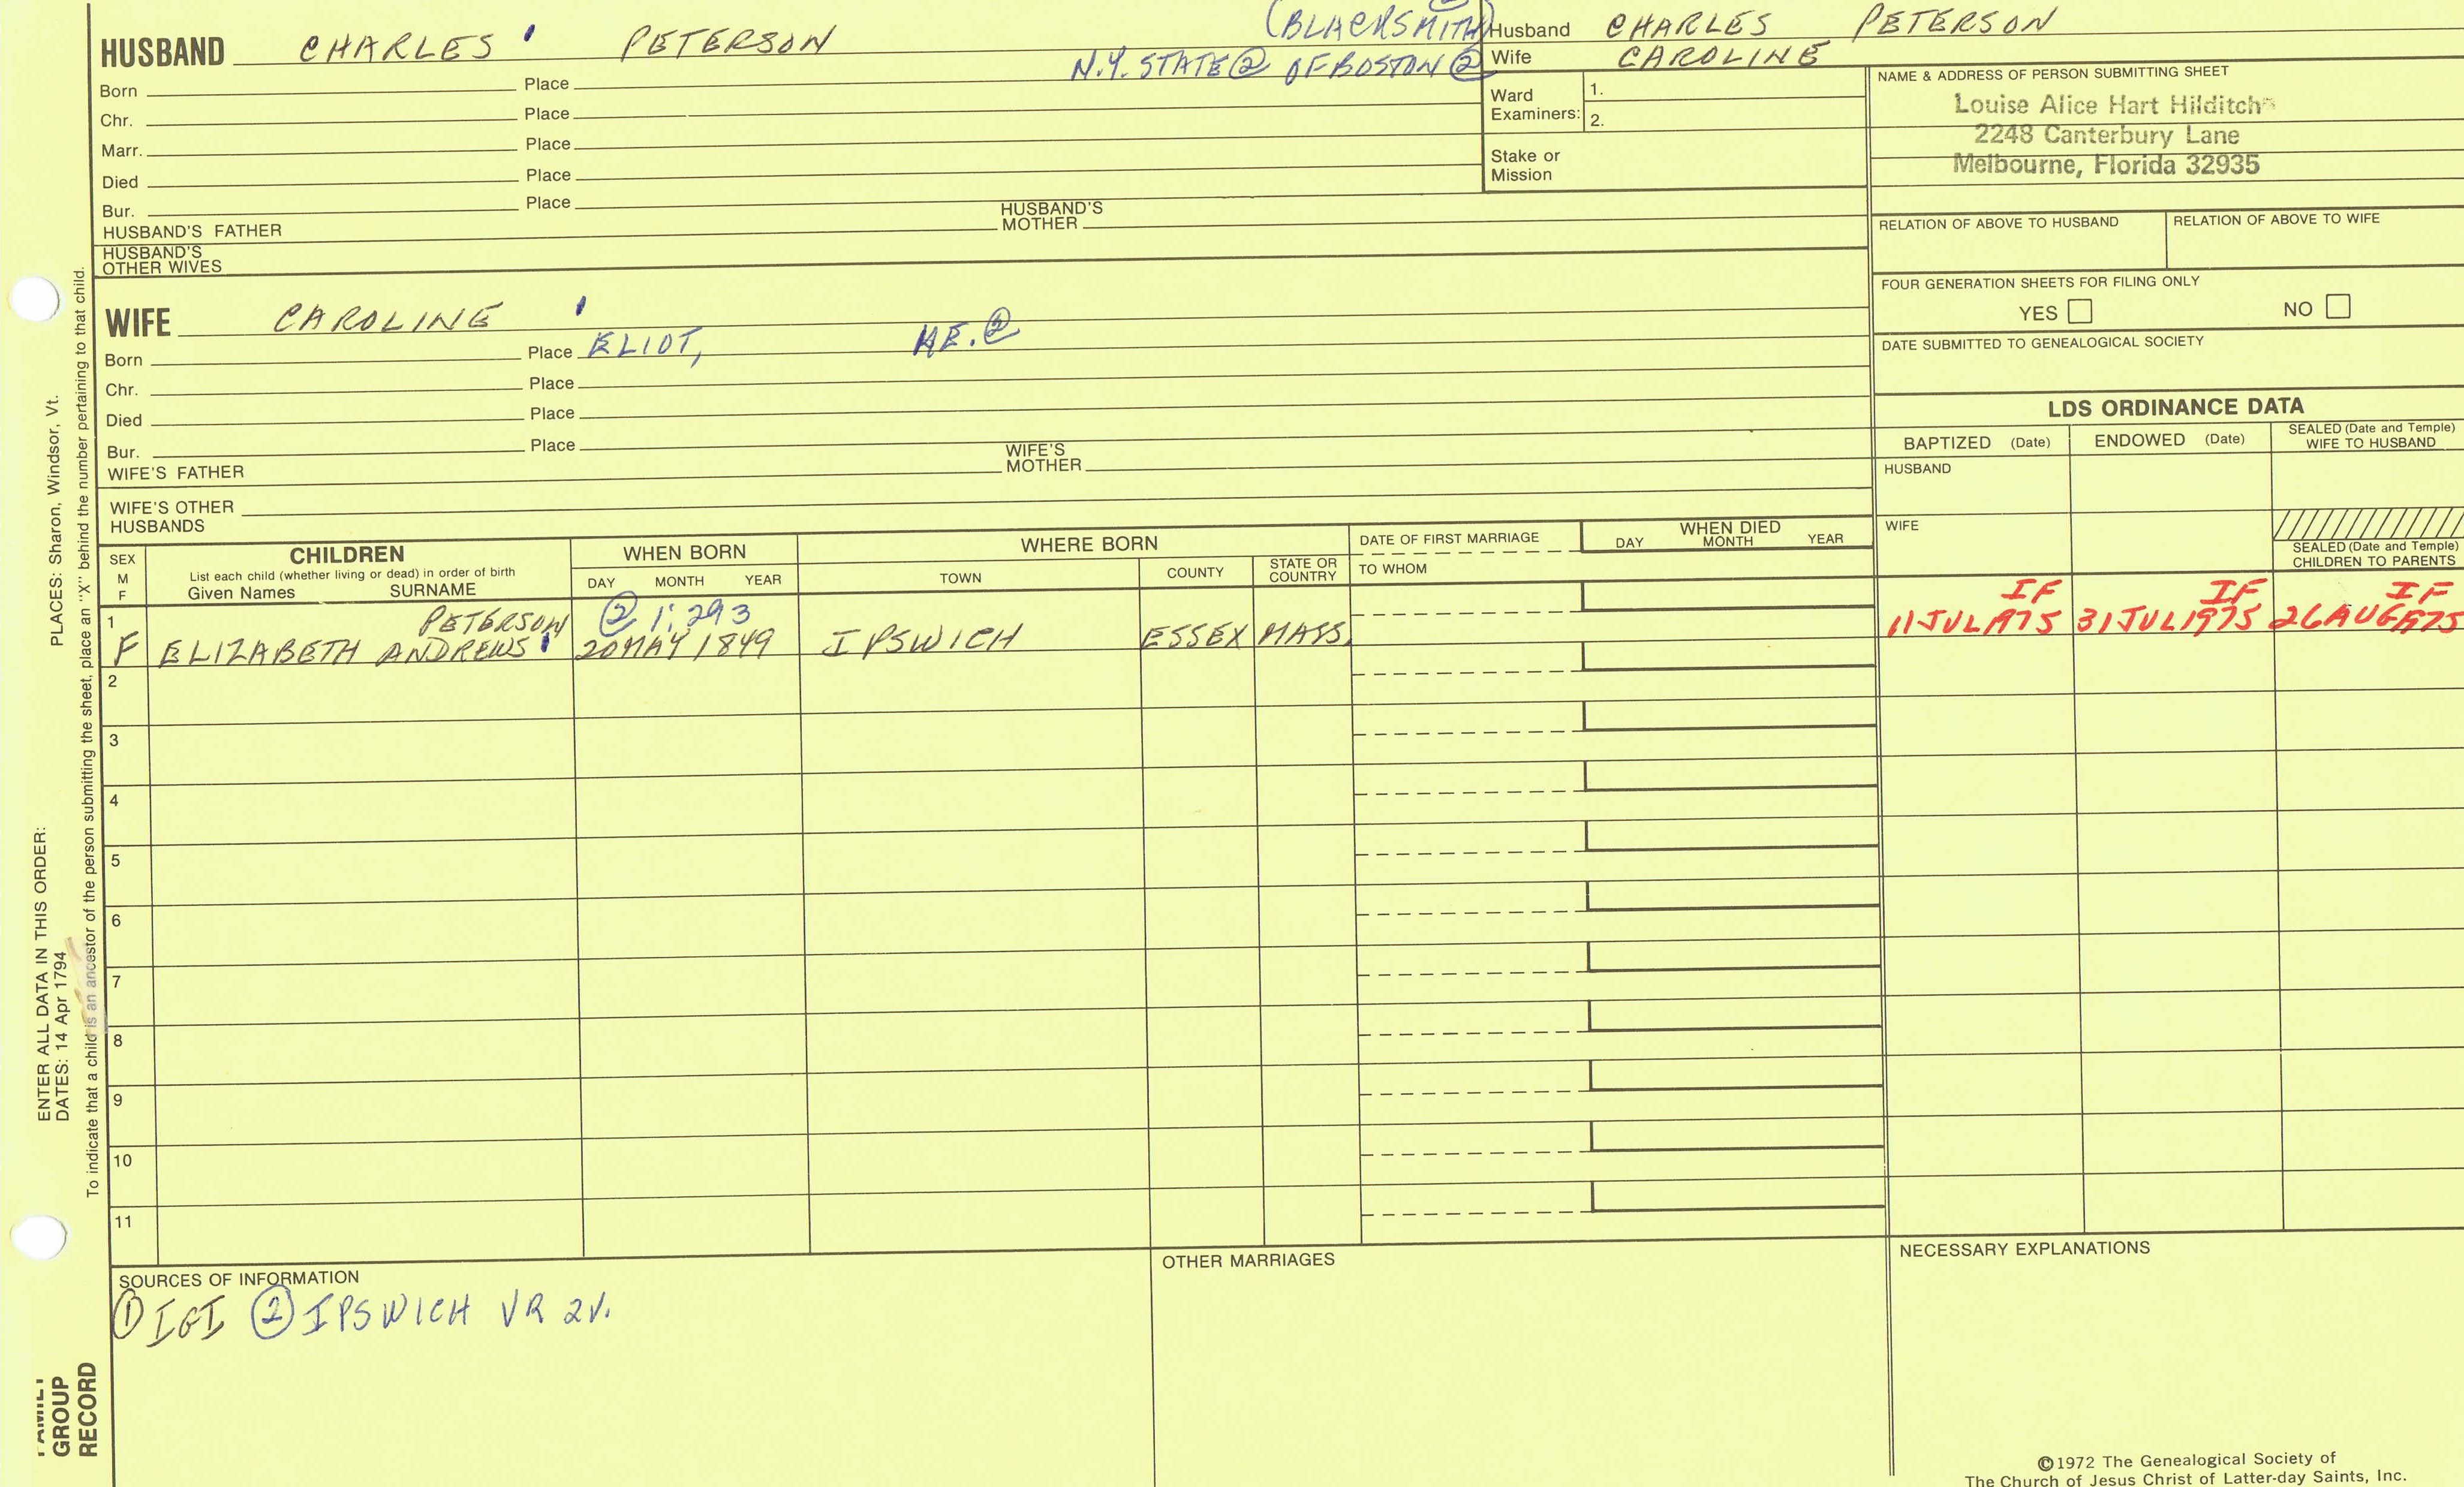 HUSBAND CHARLES PETERSON
(BLACKSMITH)
N.Y. STATE② OF BOSTON②
Born Place
Chr. Place
Marr. Place
Died Place
Bur. Place
HUSBAND'S FATHER HUSBAND'S MOTHER
HUSBAND'S OTHER WIVES
Husband CHARLES PETERSON
Wife CAROLINE
Ward Examiners: 1.
2.
Stake or Mission
NAME & ADDRESS OF PERSON SUBMITTING SHEET
Louise Alice Hart Hilditch
2248 Canterbury Lane
Melbourne, Florida 32935
RELATION OF ABOVE TO HUSBAND RELATION OF ABOVE TO WIFE
FOUR GENERATION SHEETS FOR FILING ONLY
YES NO
DATE SUBMITTED TO GENEALOGICAL SOCIETY
WIFE CAROLINE
Born Place ELIOT, ME.②
Chr. Place
Died Place
Bur. Place
WIFE'S FATHER WIFE'S MOTHER
WIFE'S OTHER HUSBANDS
LDS ORDINANCE DATA
BAPTIZED (Date) ENDOWED (Date) SEALED (Date and Temple) WIFE TO HUSBAND
HUSBAND
WIFE
SEALED (Date and Temple) CHILDREN TO PARENTS
SEX M F
CHILDREN
List each child (whether living or dead) in order of birth
Given Names SURNAME
WHEN BORN
DAY MONTH YEAR
WHERE BORN
TOWN COUNTY STATE OR COUNTRY
DATE OF FIRST MARRIAGE
TO WHOM
WHEN DIED
DAY MONTH YEAR
1 PETERSON ② 1:293 IF IF IF
F ELIZABETH ANDREWS 20 MAY 1849 IPSWICH ESSEX MASS. 11 JUL 1975 31 JUL 1975 26 AUG 1975
2
3
4
5
6
7
8
9
10
11
SOURCES OF INFORMATION
① IGI ② IPSWICH VR 2V.
OTHER MARRIAGES
NECESSARY EXPLANATIONS
©1972 The Genealogical Society of
The Church of Jesus Christ of Latter-day Saints, Inc.
ENTER ALL DATA IN THIS ORDER:
DATES: 14 Apr 1794 PLACES: Sharon, Windsor, Vt.
To indicate that a child is an ancestor of the person submitting the sheet, place an "X" behind the number pertaining to that child.
FAMILY
GROUP
RECORD